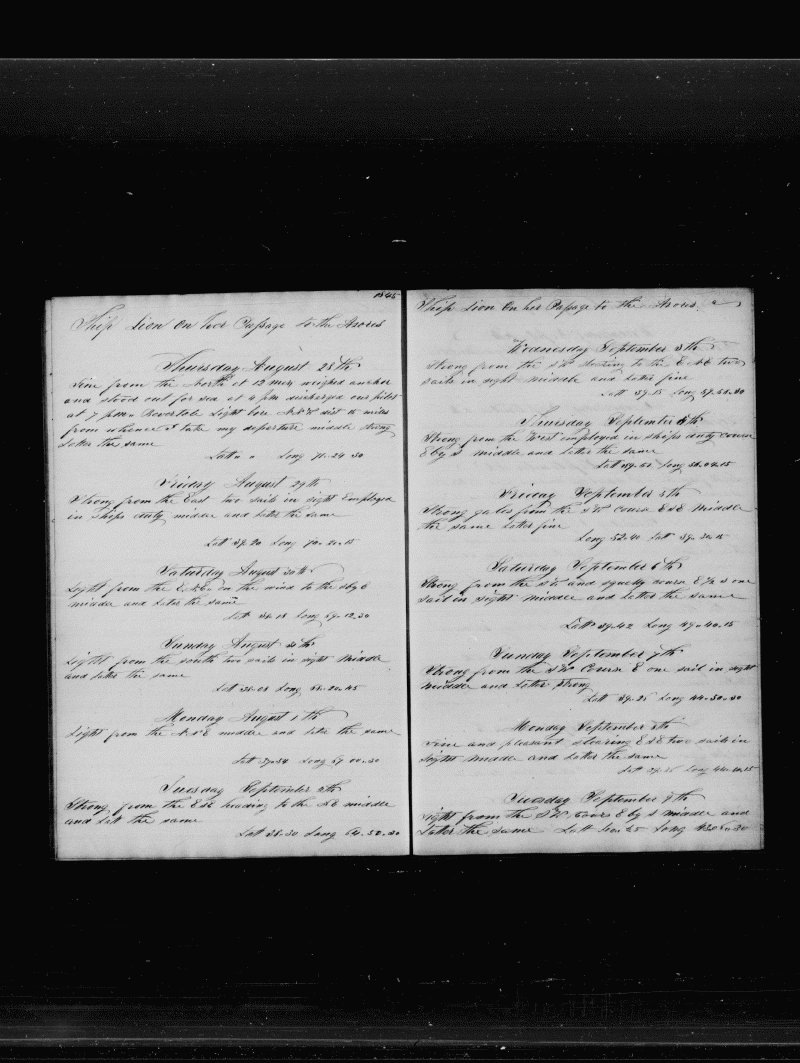 1845
Ship Lion On her Passage to the Azores
Thursday August 28th
Fine from the North at 12 weighed anchor
and stood out for sea at 4 PM discharged our pilot
at 7 PM Light bore NNW dist 15 miles
from whence I take my departure middle strong
latter the same
Latt " " Long 71-24-30
Friday August 29th
Strong from the East two sails in sight Employed
in ships duty middle and latter the same
Latt 39-20 Long 70-20-15
Saturday August 30th
Light from the on the wind to the
middle and latter the same
Latt 38-18 Long 69-12-30
Sunday August 31th
Light from the south two sails in sight middle
and latter the same
Latt 38-08 Long
Monday August 1th
Light from the NNE middle and latter the same
Latt 37-34 Long
Tuesday September 2th
Strong from the heading to the NE middle
and Latt the same
Latt 38-30 Long 61-52-30
Ship Lion On her Passage to the Azores
Wednesday September 3th
Strong from the SW stearing to the two
sails in sight middle and latter fine
Latt 39-15 Long
Thursday September 4th
Strong from the West employed in ships duty course
E by S middle and latter the same
Latt Long
Friday September 5th
Strong gales from the SW course middle
the same latter fine
Long 52-40 Latt 39-30-15
Saturday September 6th
Strong from the SW and squally course one
sail in sight middle and latter the same
Latt 39-42 Long 49-40-15
Sunday September 7th
Strong from the SW Course E one sail in sight
middle and latter strong
Latt 39-25 Long
Monday September 8th
Fine and pleasant stearing two sails in
sight middle and latter the same
Latt 39-25 Long
Tuesday September 9th
Light from the SW course E by S middle and
latter the same Latt Long